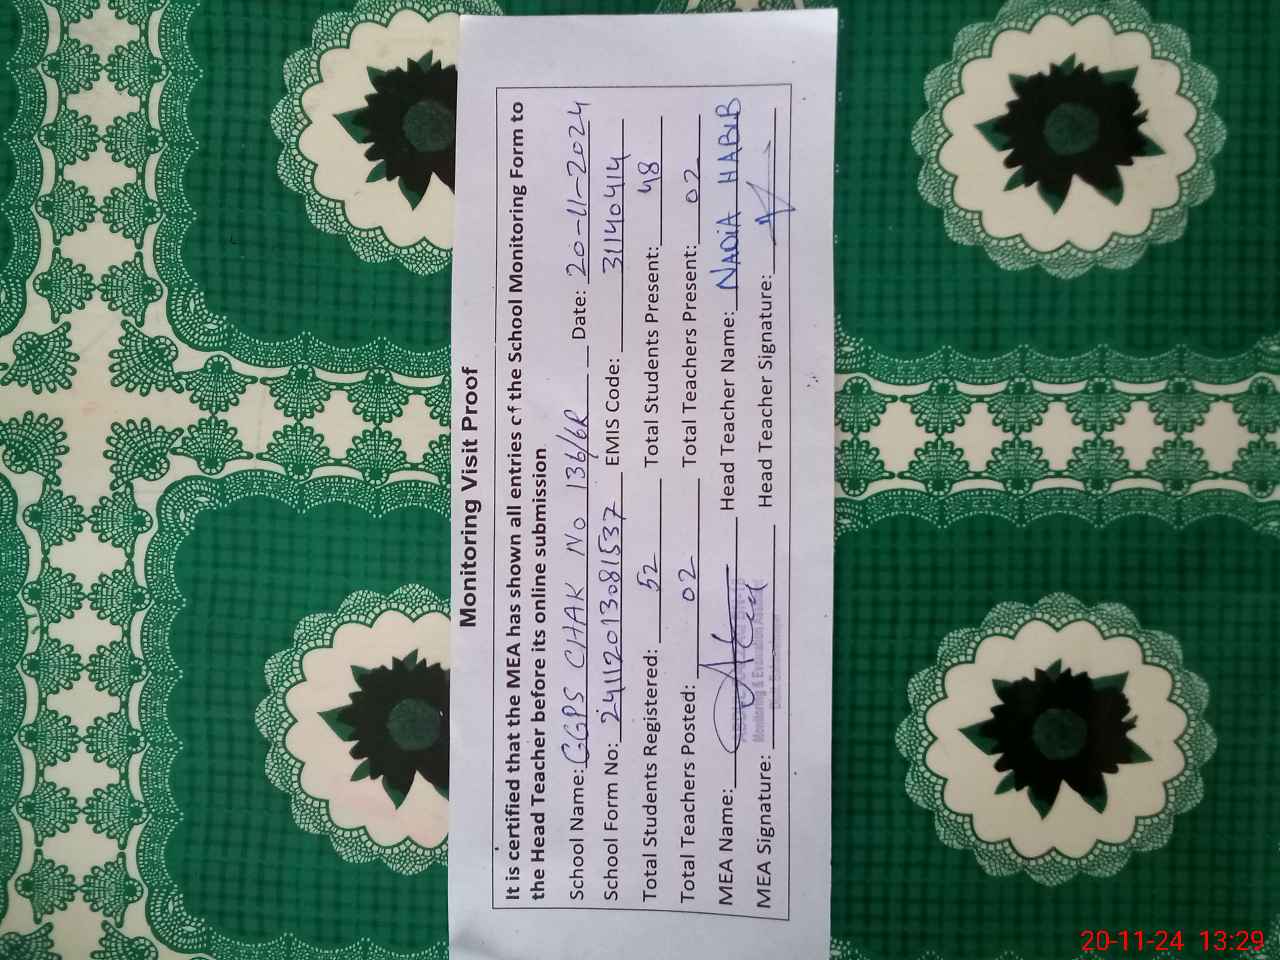 Monitoring Visit Proof
It is certified that the MEA has shown all entries of the School Monitoring Form to
the Head Teacher before its online submission
School Name: GGPS CHAK No 136/6R Date: 20-11-2024
School Form No: 24112013081537 EMIS Code: 31140414
Total Students Registered: 52 Total Students Present: 48
Total Teachers Posted: 02 Total Teachers Present: 02
MEA Name: Head Teacher Name: NADiA HABiB
Monitoring & Evaluation
MEA Signature: Head Teacher Signature:
20-11-24 13:29